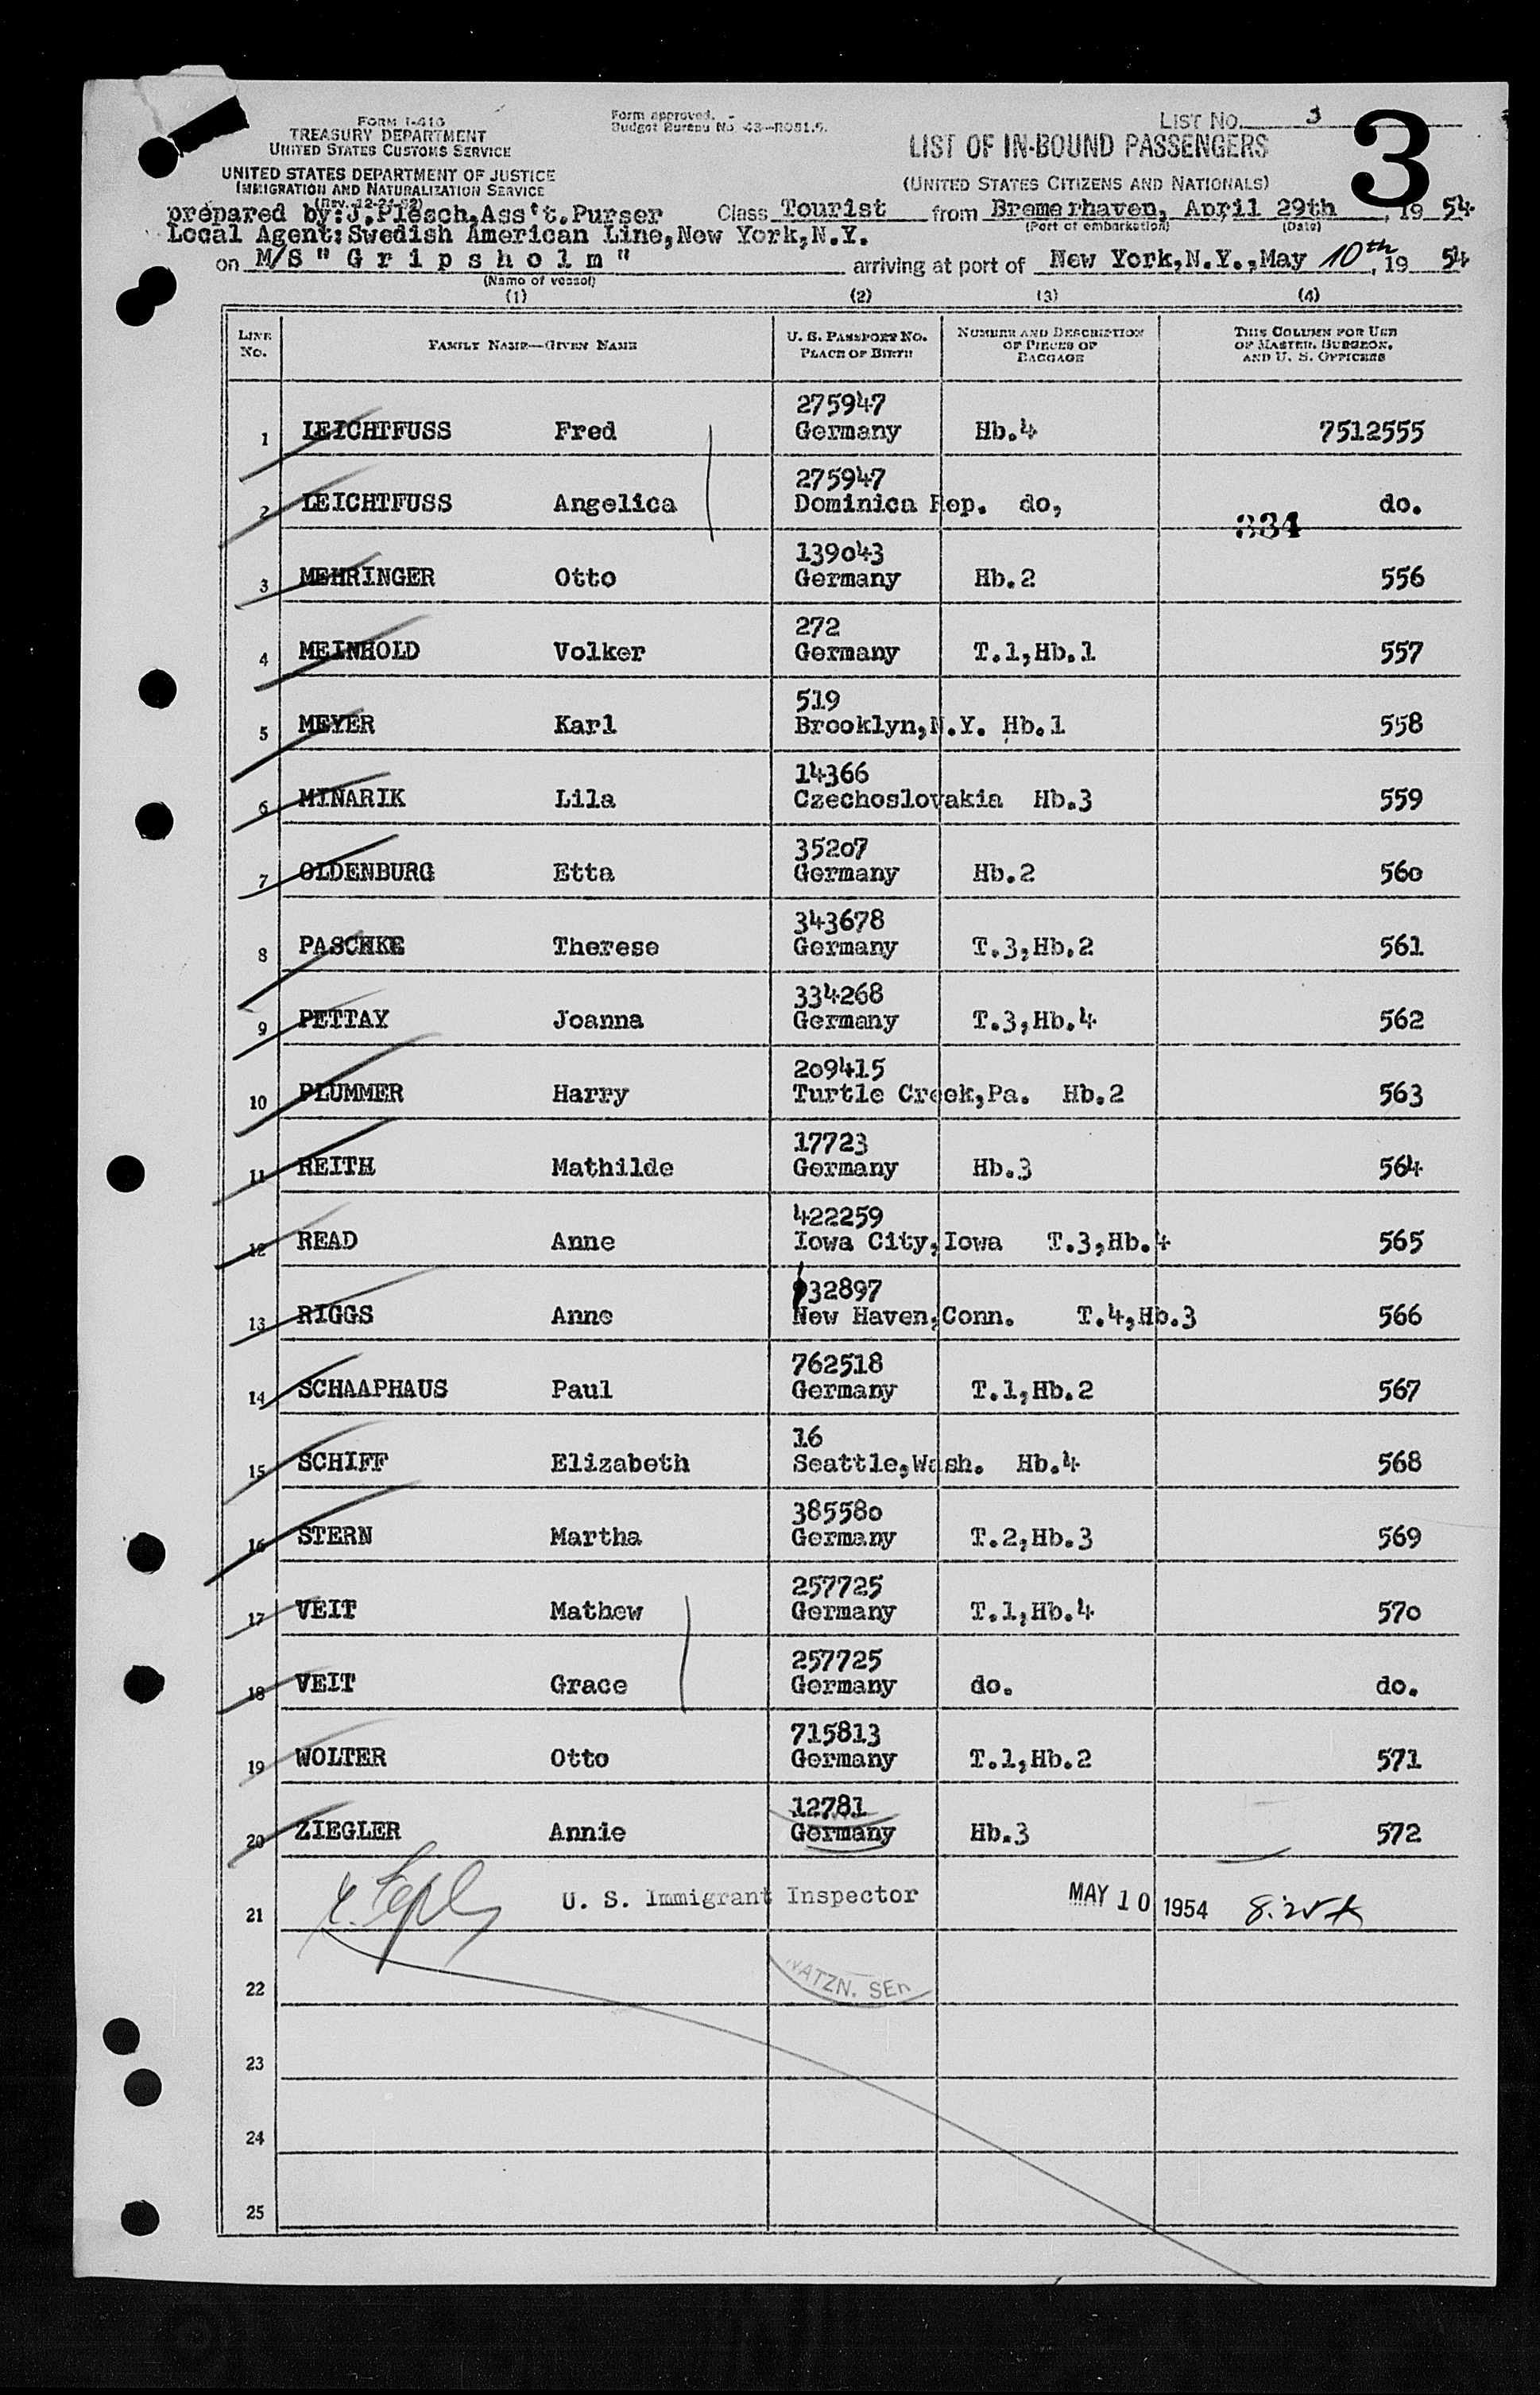 FORM I-418
TREASURY DEPARTMENT
UNITED STATES CUSTOMS SERVICE
UNITED STATES DEPARTMENT OF JUSTICE
IMMIGRATION AND NATURALIZATION SERVICE
Form approved.
Budget Bureau No. 43-R081.5.
LIST NO. 3
3
LIST OF IN-BOUND PASSENGERS
(UNITED STATES CITIZENS AND NATIONALS)
prepared by:J.Plesch,Ass't.Purser Class Tourist from Bremerhaven, April 29th, 19 54
(Port of embarkation) (Date)
Local Agent:Swedish American Line,New York,N.Y.
on M/S "G r i p s h o l m" arriving at port of New York,N.Y.,May 10th, 19 54
(Name of vessel)
(1) (2) (3) (4)
LINE NO. FAMILY NAME—GIVEN NAME U. S. PASSPORT NO. PLACE OF BIRTH NUMBER AND DESCRIPTION OF PIECES OF BAGGAGE THIS COLUMN FOR USE OF MASTER, SURGEON, AND U. S. OFFICERS
275947
1 LEICHTFUSS Fred Germany Hb.4 7512555
275947
2 LEICHTFUSS Angelica Dominica Rep. do, do.
334
139043
3 MEHRINGER Otto Germany Hb.2 556
272
4 MEINHOLD Volker Germany T.1,Hb.1 557
519
5 MEYER Karl Brooklyn,N.Y. Hb.1 558
14366
6 MINARIK Lila Czechoslovakia Hb.3 559
35207
7 OLDENBURG Etta Germany Hb.2 560
343678
8 PASCHKE Therese Germany T.3,Hb.2 561
334268
9 PETTAY Joanna Germany T.3,Hb.4 562
209415
10 PLUMMER Harry Turtle Creek,Pa. Hb.2 563
17723
11 REITH Mathilde Germany Hb.3 564
422259
12 READ Anne Iowa City,Iowa T.3,Hb.4 565
32897
13 RIGGS Anne New Haven,Conn. T.4,Hb.3 566
762518
14 SCHAAPHAUS Paul Germany T.1,Hb.2 567
16
15 SCHIFF Elizabeth Seattle,Wash. Hb.4 568
385580
16 STERN Martha Germany T.2,Hb.3 569
257725
17 VEIT Mathew Germany T.1,Hb.4 570
257725
18 VEIT Grace Germany do. do.
715813
19 WOLTER Otto Germany T.1,Hb.2 571
12781
20 ZIEGLER Annie Germany Hb.3 572
21 U. S. Immigrant Inspector MAY 10 1954
22 NATZN. SER
23
24
25